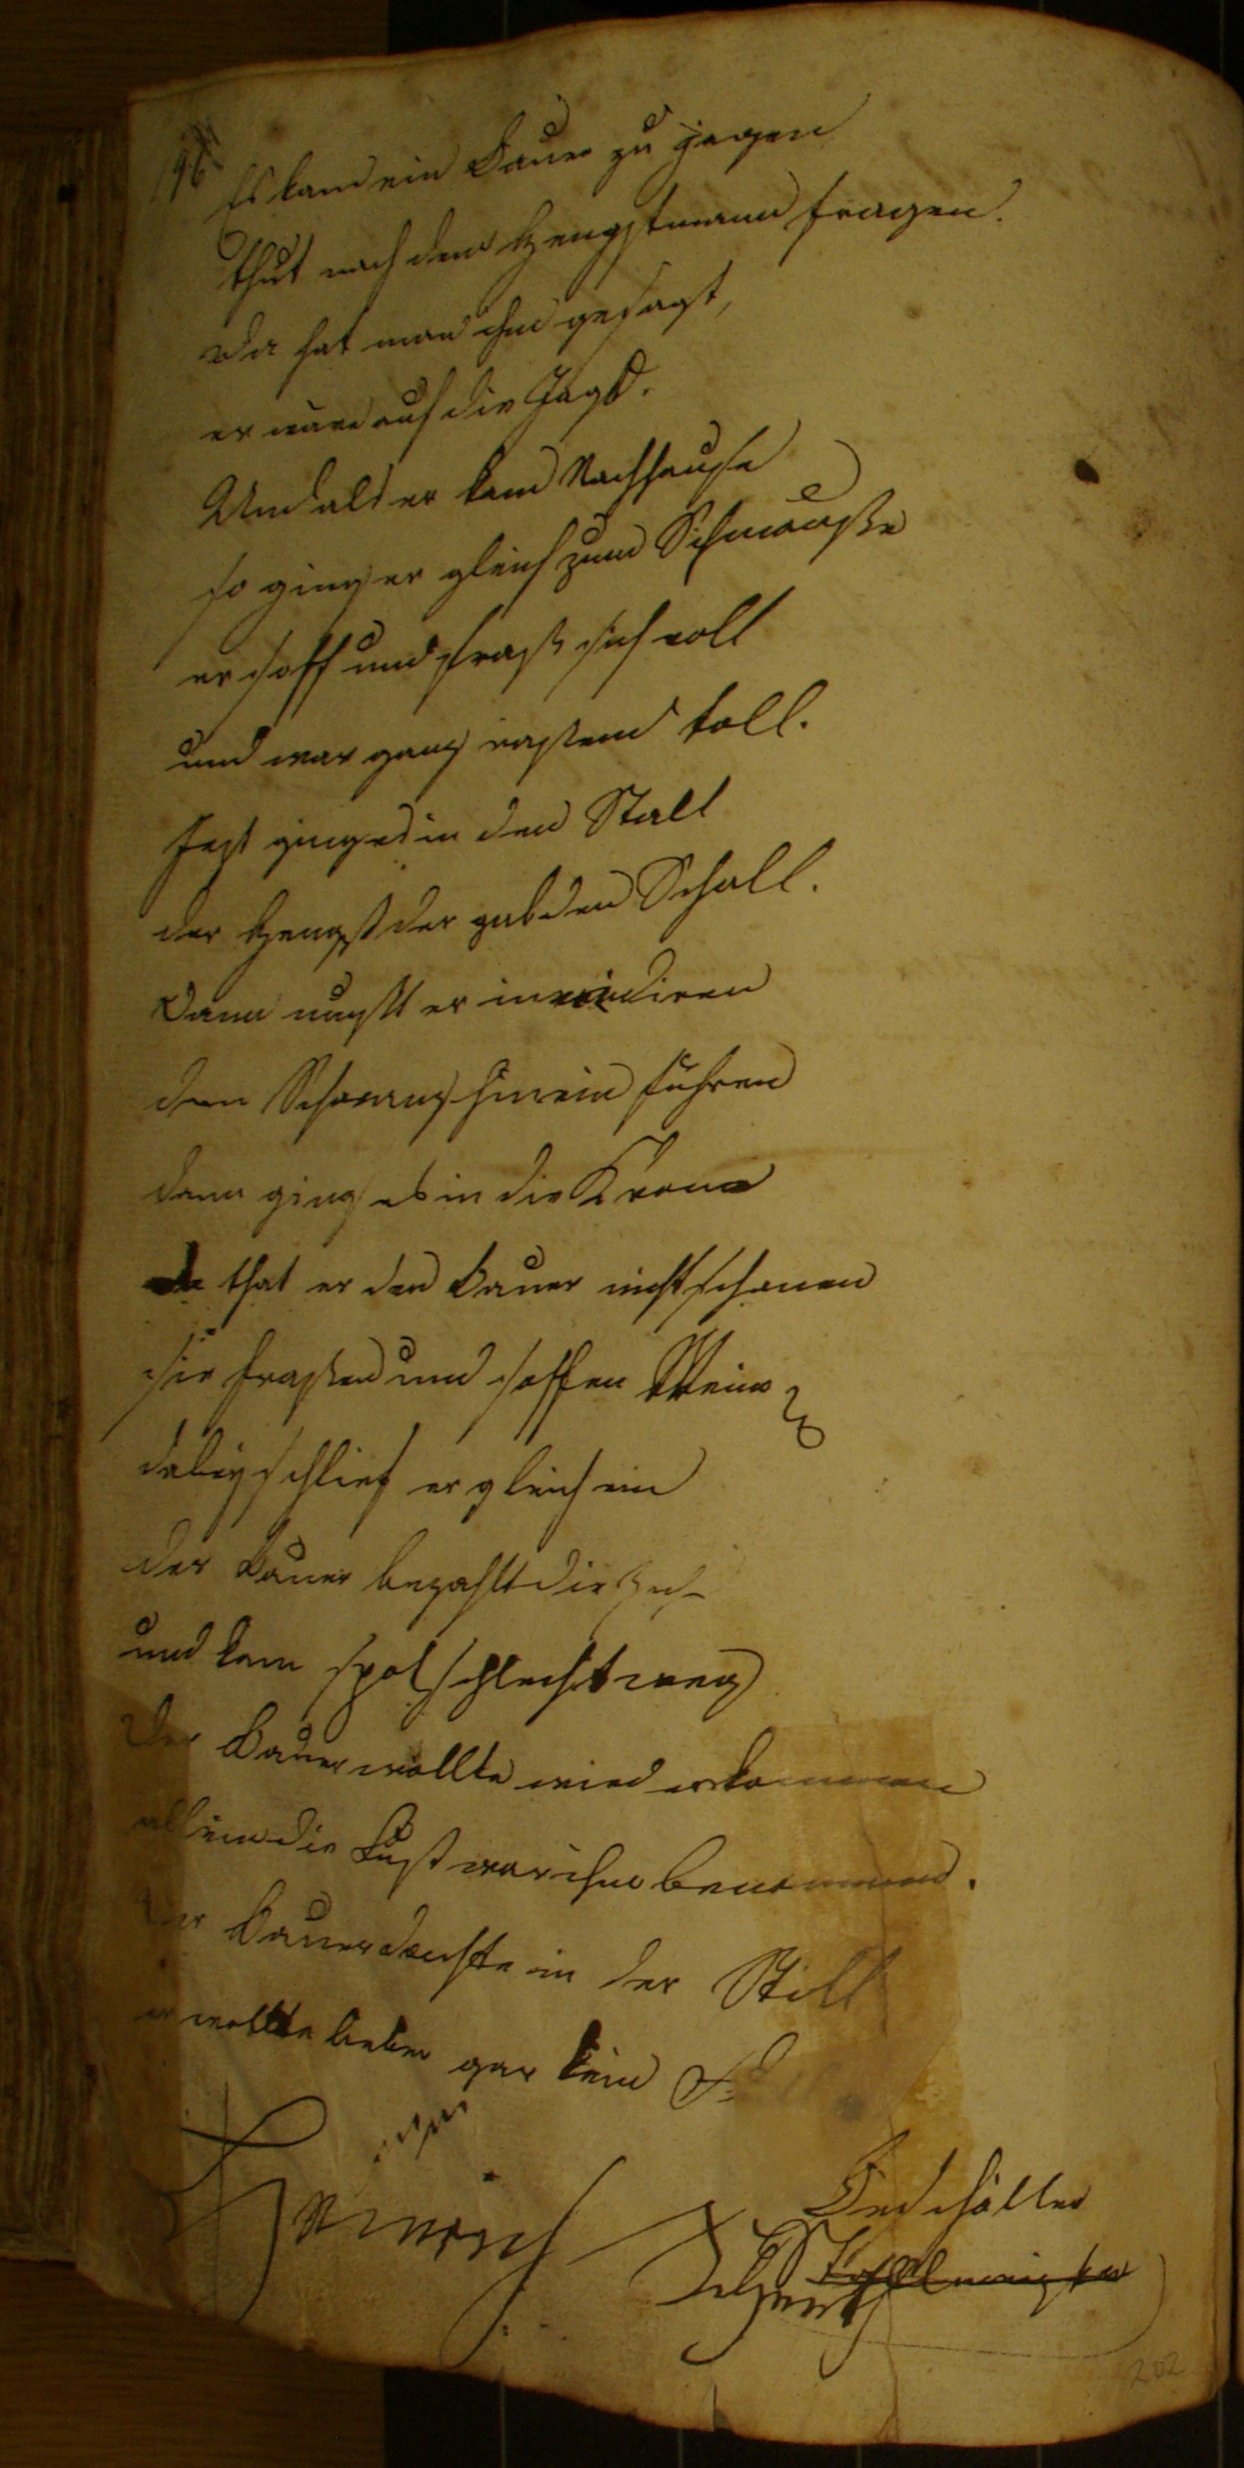 196
Es kam ein Bauer zu jagen
thut nach dem Hengstmann fragen.
Da hat man ihm gesagt,
er wäre auf die Jagd.
Und als er kam Nachhause
so ging er gleich zum Schmauße
er soff und fraß sich voll
und war ganz rasend toll.
Jezt ging es in den Stall
der Hengst der gab den Schall.
Dann mußt er
den Schwanz hinein führen
dann ging es in die Krone
da that er den Bauer nicht schonen
sie fraßen und soffen Wein
dabey schlief er gleich ein
der Bauer bezahlt die Zech
und kam schlecht weg
Der Bauer wollte wiederkommen
allein die Lust war ihm benommen.
Der Bauer dachte in der Still
er wollte lieber gar kein
202